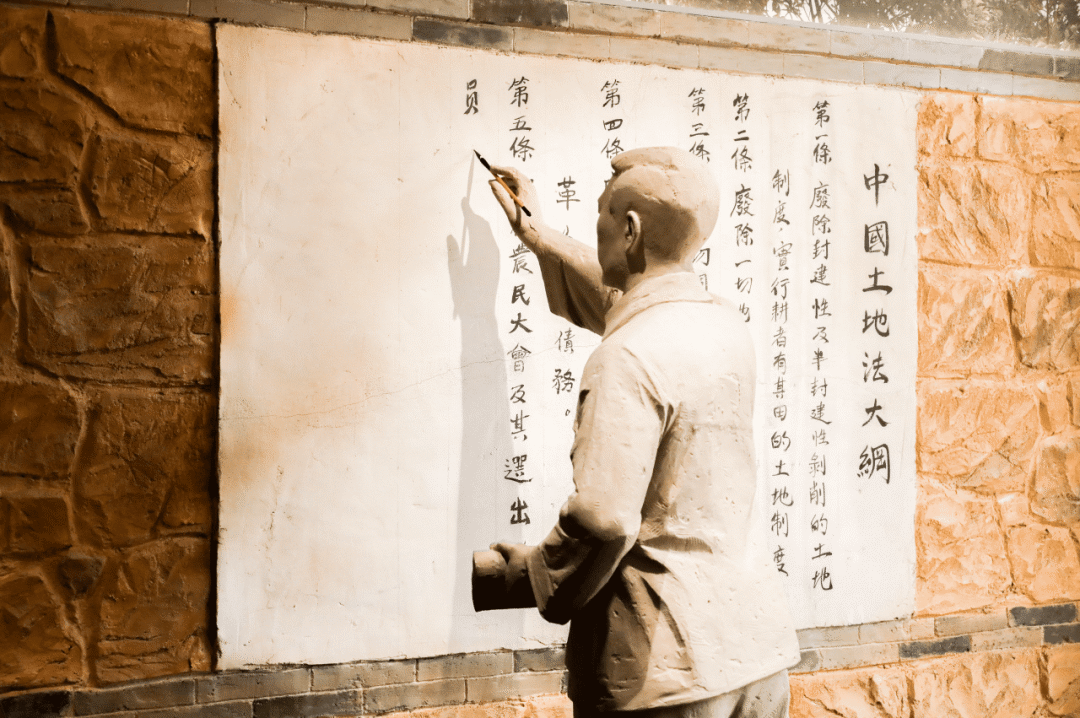 中國土地法大綱
第一條 廢除封建性及半封建性剝削的土地
制度，實行耕者有其田的土地制度
第二條 廢除一切
第三條
第四條
革 債務。
第五條 農民大會及其選出
員